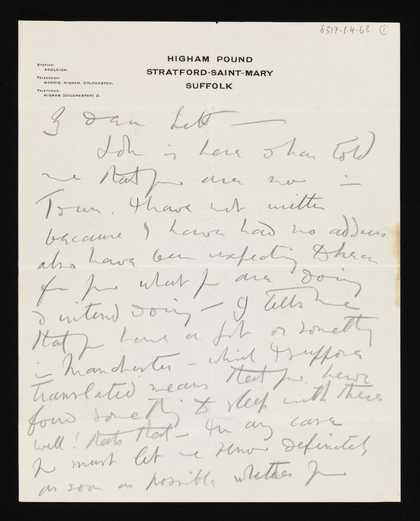 8317.1.4.63 1
STATION:
HADLEIGH.
TELEGRAMS:
MORRIS, HIGHAM, COLCHESTER.
TELEPHONE:
HIGHAM (COLCHESTER) 2.
HIGHAM POUND
STRATFORD-SAINT-MARY
SUFFOLK
My Dear Lett —
John is here & has told
me that you are now in
Town. I have not written
because I have had no address
also have been expecting to hear
from you what you are doing
& intend doing — J tells me
that you have a job or something
in Manchester — which I suppose
translated means that you have
found something to sleep with there
well! thats that — In any case
you must let me know definitely
as soon as possible whether you